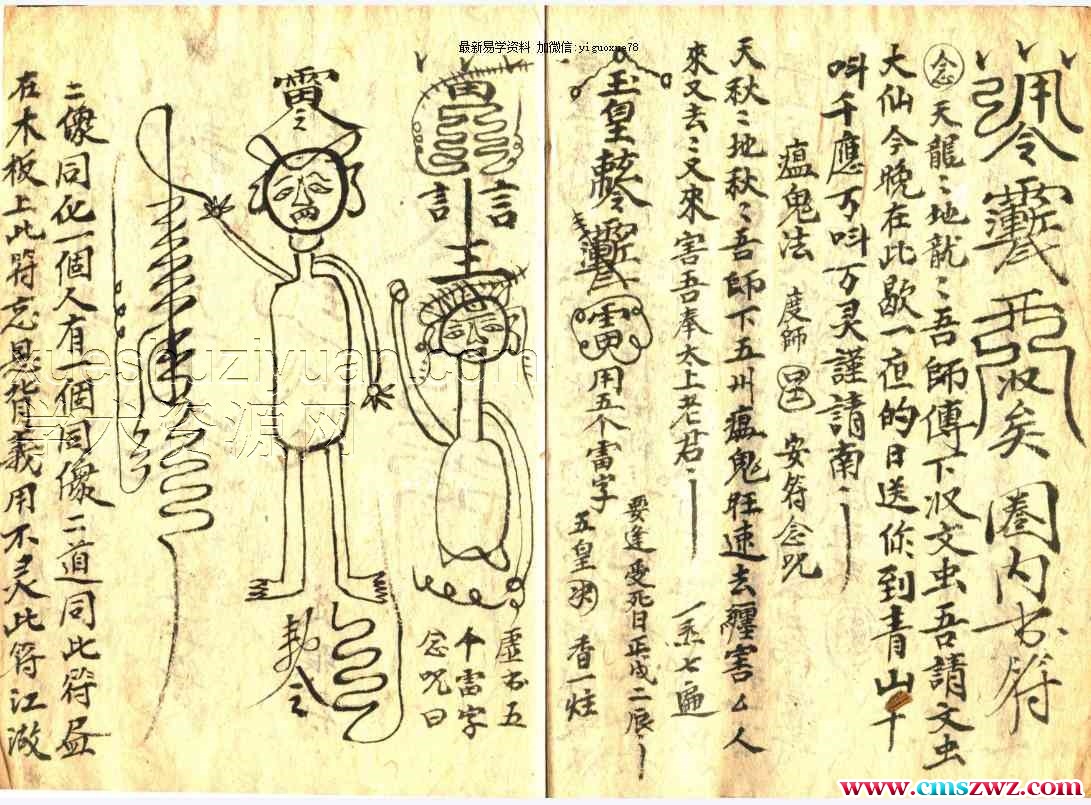 最新易学资料 加微信:yiguoxue78
圈内书符
念天龍〻地龍〻吾師傅下収文虫吾請文虫
大仙今晚在此歇一夜的日送你到青山十
呌千應万呌万灵謹請南〻
瘟鬼法 度師 安符念咒
天秋〻地秋〻吾師下五州瘟鬼旺速去纏害厶人
來又去〻又來害吾奉太上老君〻
一炁七遍
玉皇
雷用五个雷字
要逢受死日正戌二辰
五皇决 香一炷
雷
言 言
王
虚书五
千雷字
念咒曰
雷
二像同化一個人有一個同像二道同此符
在木板上此符忘恩背義用不灵此符江
xueshuziyuan.com
学术资源网
www.cmszwz.com